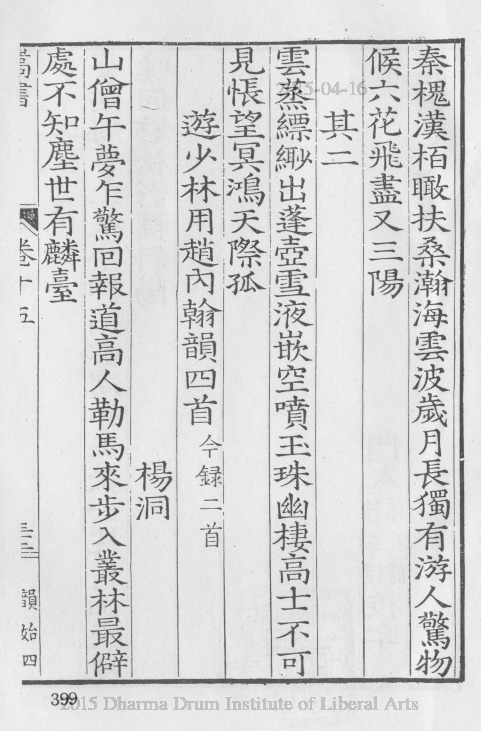 秦槐漢栢瞰扶桑瀚海雲波歲月長獨有游人驚物
候六花飛盡又三陽
其二
雲蒸縹緲出蓬壺雪液嵌空噴玉珠幽棲高士不可
見悵望冥鴻天際孤
遊少林用趙內翰韻四首 今録二首
楊洞
山僧午夢乍驚回報道高人勒馬來步入叢林最僻
處不知塵世有麟臺
嵩書 卷十五 三三 韻始四
399
2015-04-16
2015 Dharma Drum Institute of Liberal Arts